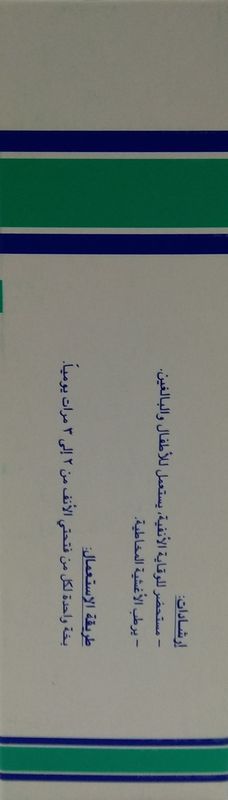 إرشادات:
- مستحضر للوقاية الأنفية، يستعمل للأطفال والبالغين.
- يرطب الأغشية المخاطية.
طريقة الإستعمال:
بخة واحدة لكل من فتحتي الأنف من ٢ إلى ٣ مرات يومياً.